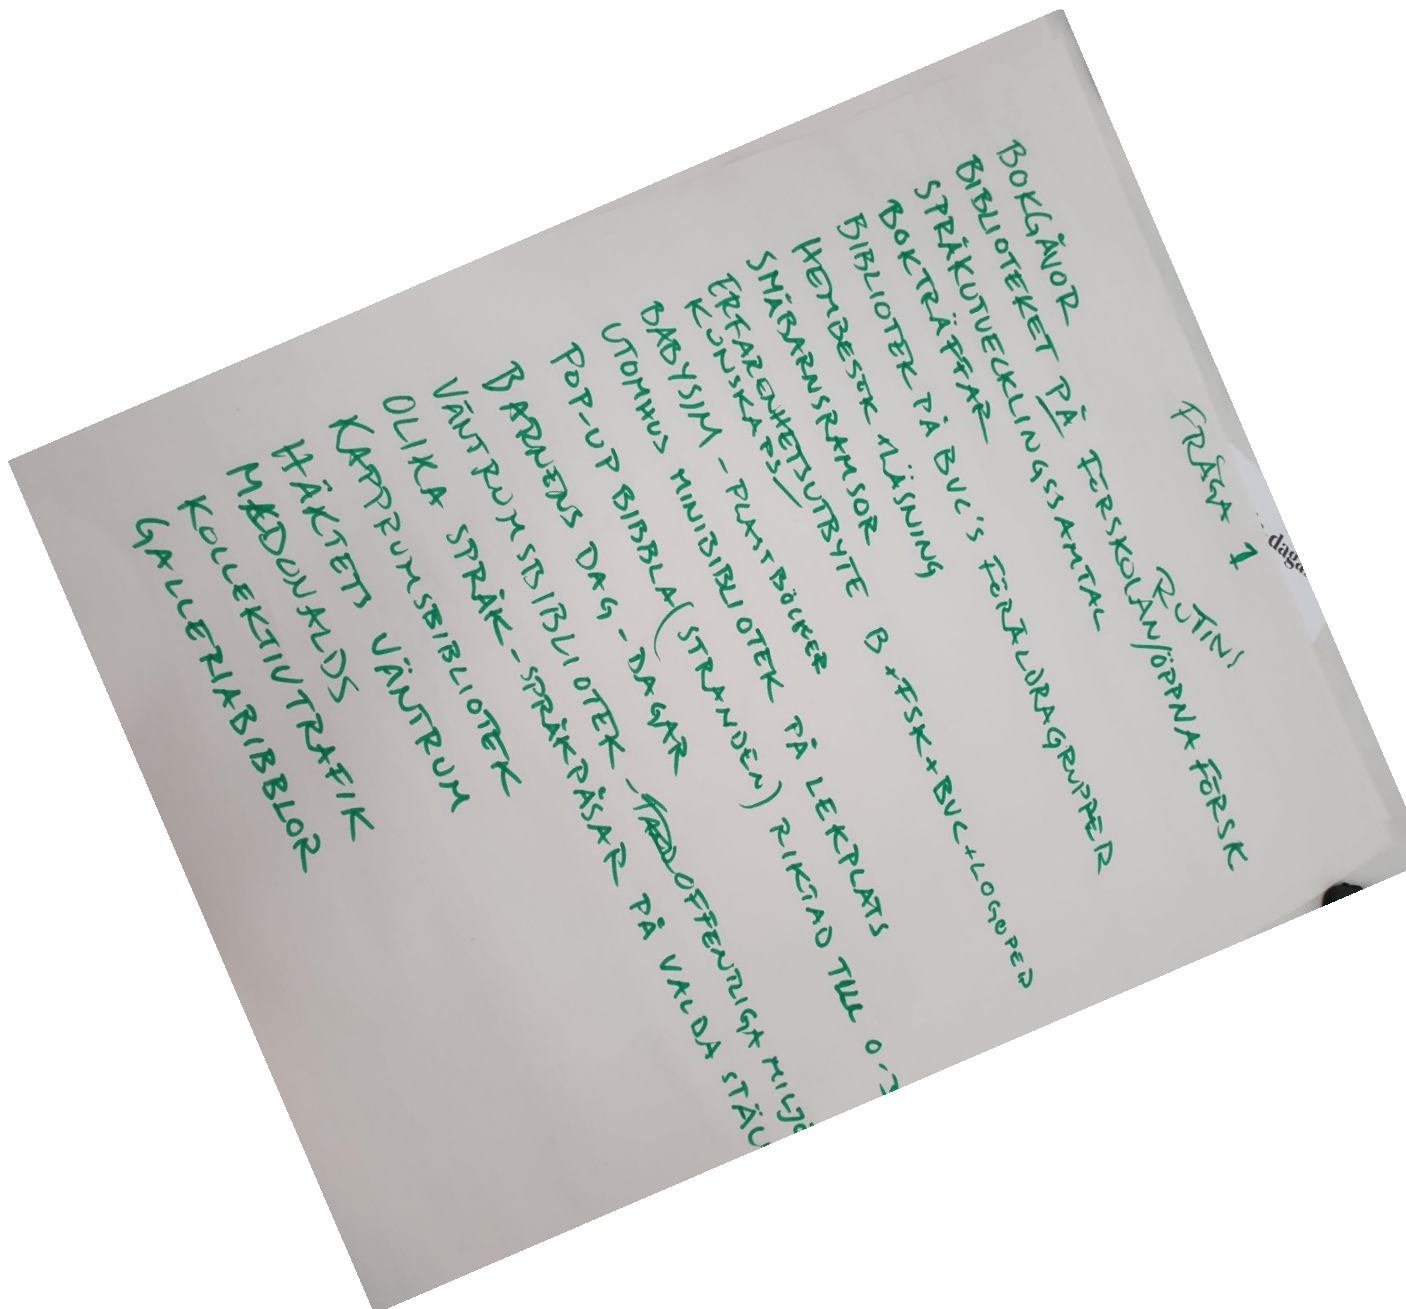 FRÅGA 1
RUTINS
BOKGÅVOR
BIBLIOTEKET PÅ FÖRSKOLAN/ÖPPNA FÖRSK
SPRÅKUTVECKLINGSSAMTAL
BOKTRÄFFAR
BIBLIOTEK PÅ BVC'S FÖRÄLDRAGRUPPER
HEMBESÖK +LÄSNING
SMÅBARNSRAMSOR
ERFARENHETSUTBYTE B+FSK+BVC+LOGOPED
KUNSKAPS/
BABYSIM - PLASTBÖCKER
UTOMHUS MINIBIBLIOTEK PÅ LEKPLATS
POP-UP BIBBLA (STRANDEN) RIKTAD TILL 0-
BARNENS DAG - DAGAR
VÄNTRUMSBIBLIOTEK - OFFENTLIGA MILJÖ
OLIKA SPRÅK - SPRÅKPÅSAR PÅ VALDA STÄL
KAPPRUMSBIBLIOTEK
HÄKTETS VÄNTRUM
MACDONALDS
KOLLEKTIVTRAFIK
GALLERIABIBBLOR
daga